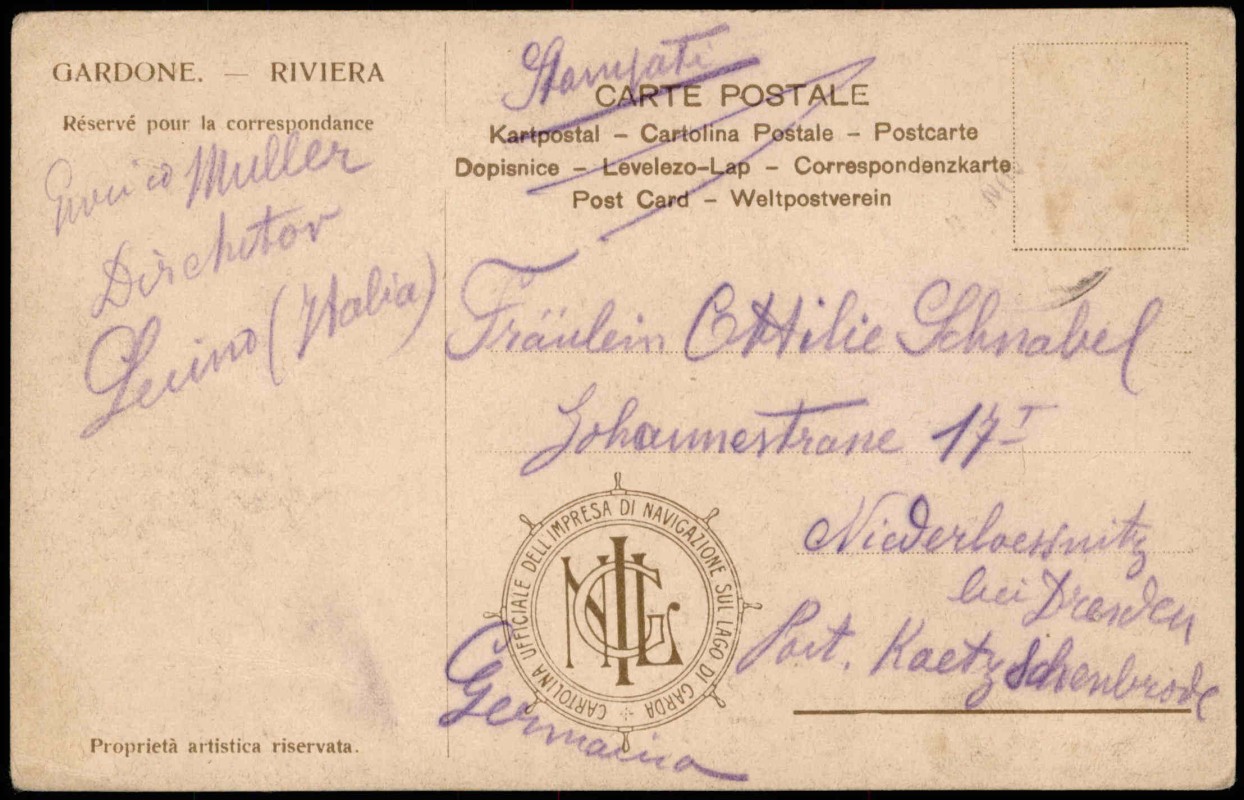 GARDONE. — RIVIERA
Réservé pour la correspondance
Enrico Muller
Luino (Italia)
Proprietà artistica riservata.
Stampati
CARTE POSTALE
Kartpostal – Cartolina Postale – Postcarte
Dopisnice – Levelezo-Lap – Correspondenzkarte
Post Card – Weltpostverein
Fräulein Ottilie Schnabel
17 I
Niederloessnitz
bei Dresden
Post. Kaetzschenbrode
Germania
CARTOLINA UFFICIALE DELL'IMPRESA DI NAVIGAZIONE SUL LAGO DI GARDA